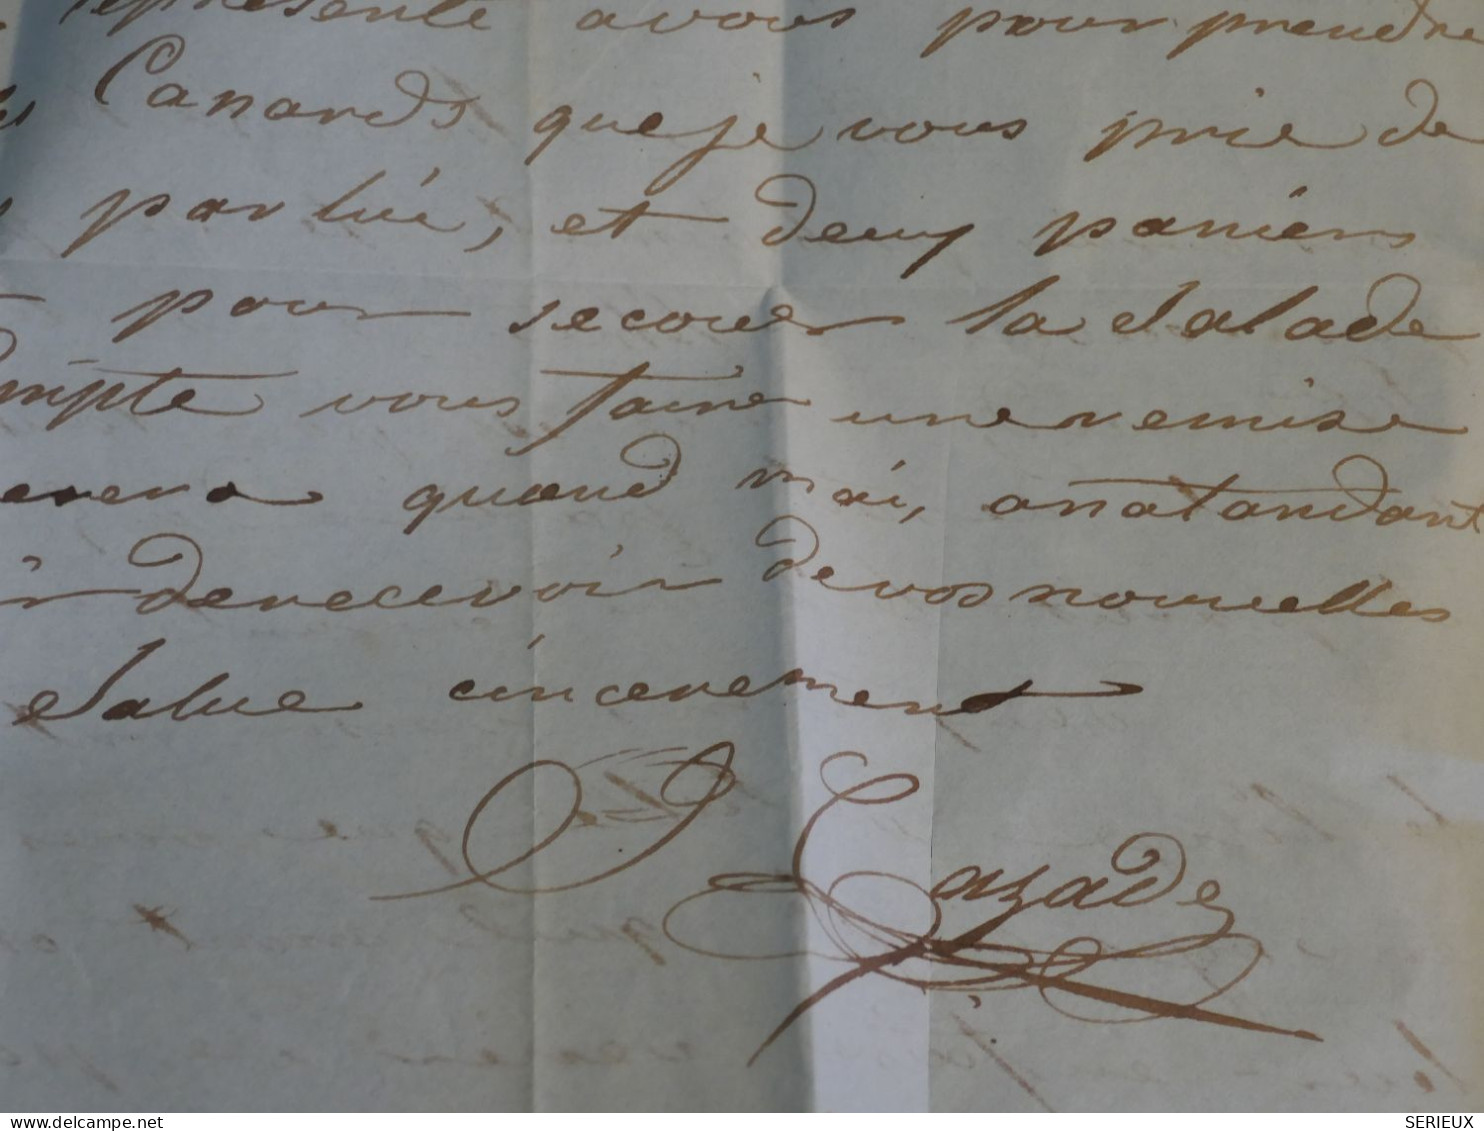 represente avous pour prendre
Canards que je vous prie de
par lui, et deux paniers
pour secouer la Salade
vous faire une remise
quand moi, anatandant
derecevoir devos nouvelles
Salue cincerement
Cazade
www.delcampe.net
SERIEUX